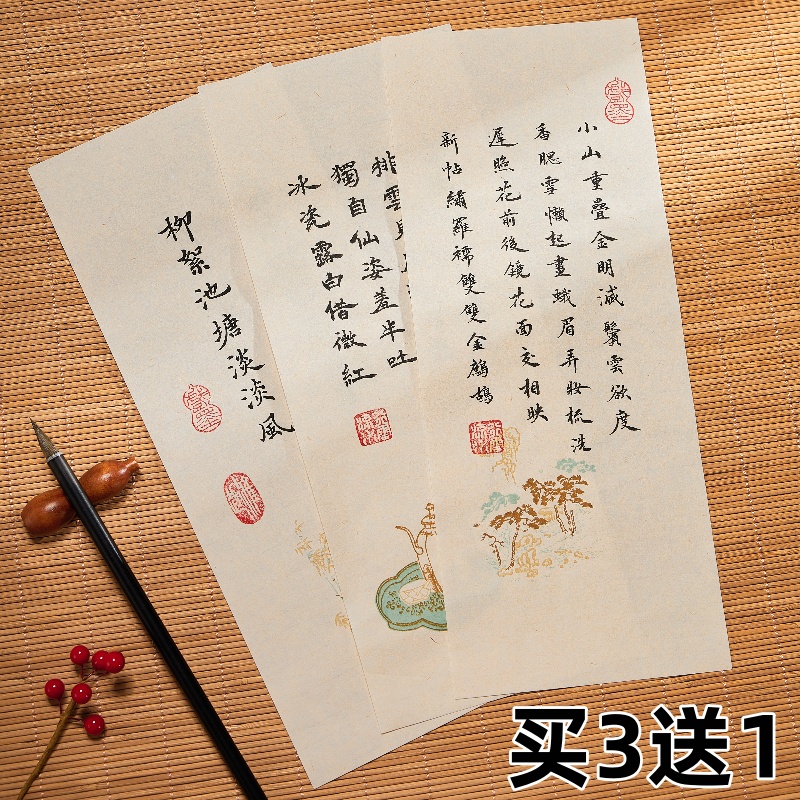 小山重疊金明滅鬢雲欲度
香腮雪懶起畫蛾眉弄妝梳洗
遲照花前後鏡花面交相映
新帖繡羅襦雙雙金鷓鴣
排雲
獨自仙姿羞半吐
冰瓷露白借微紅
柳絮池塘淡淡風
买3送1